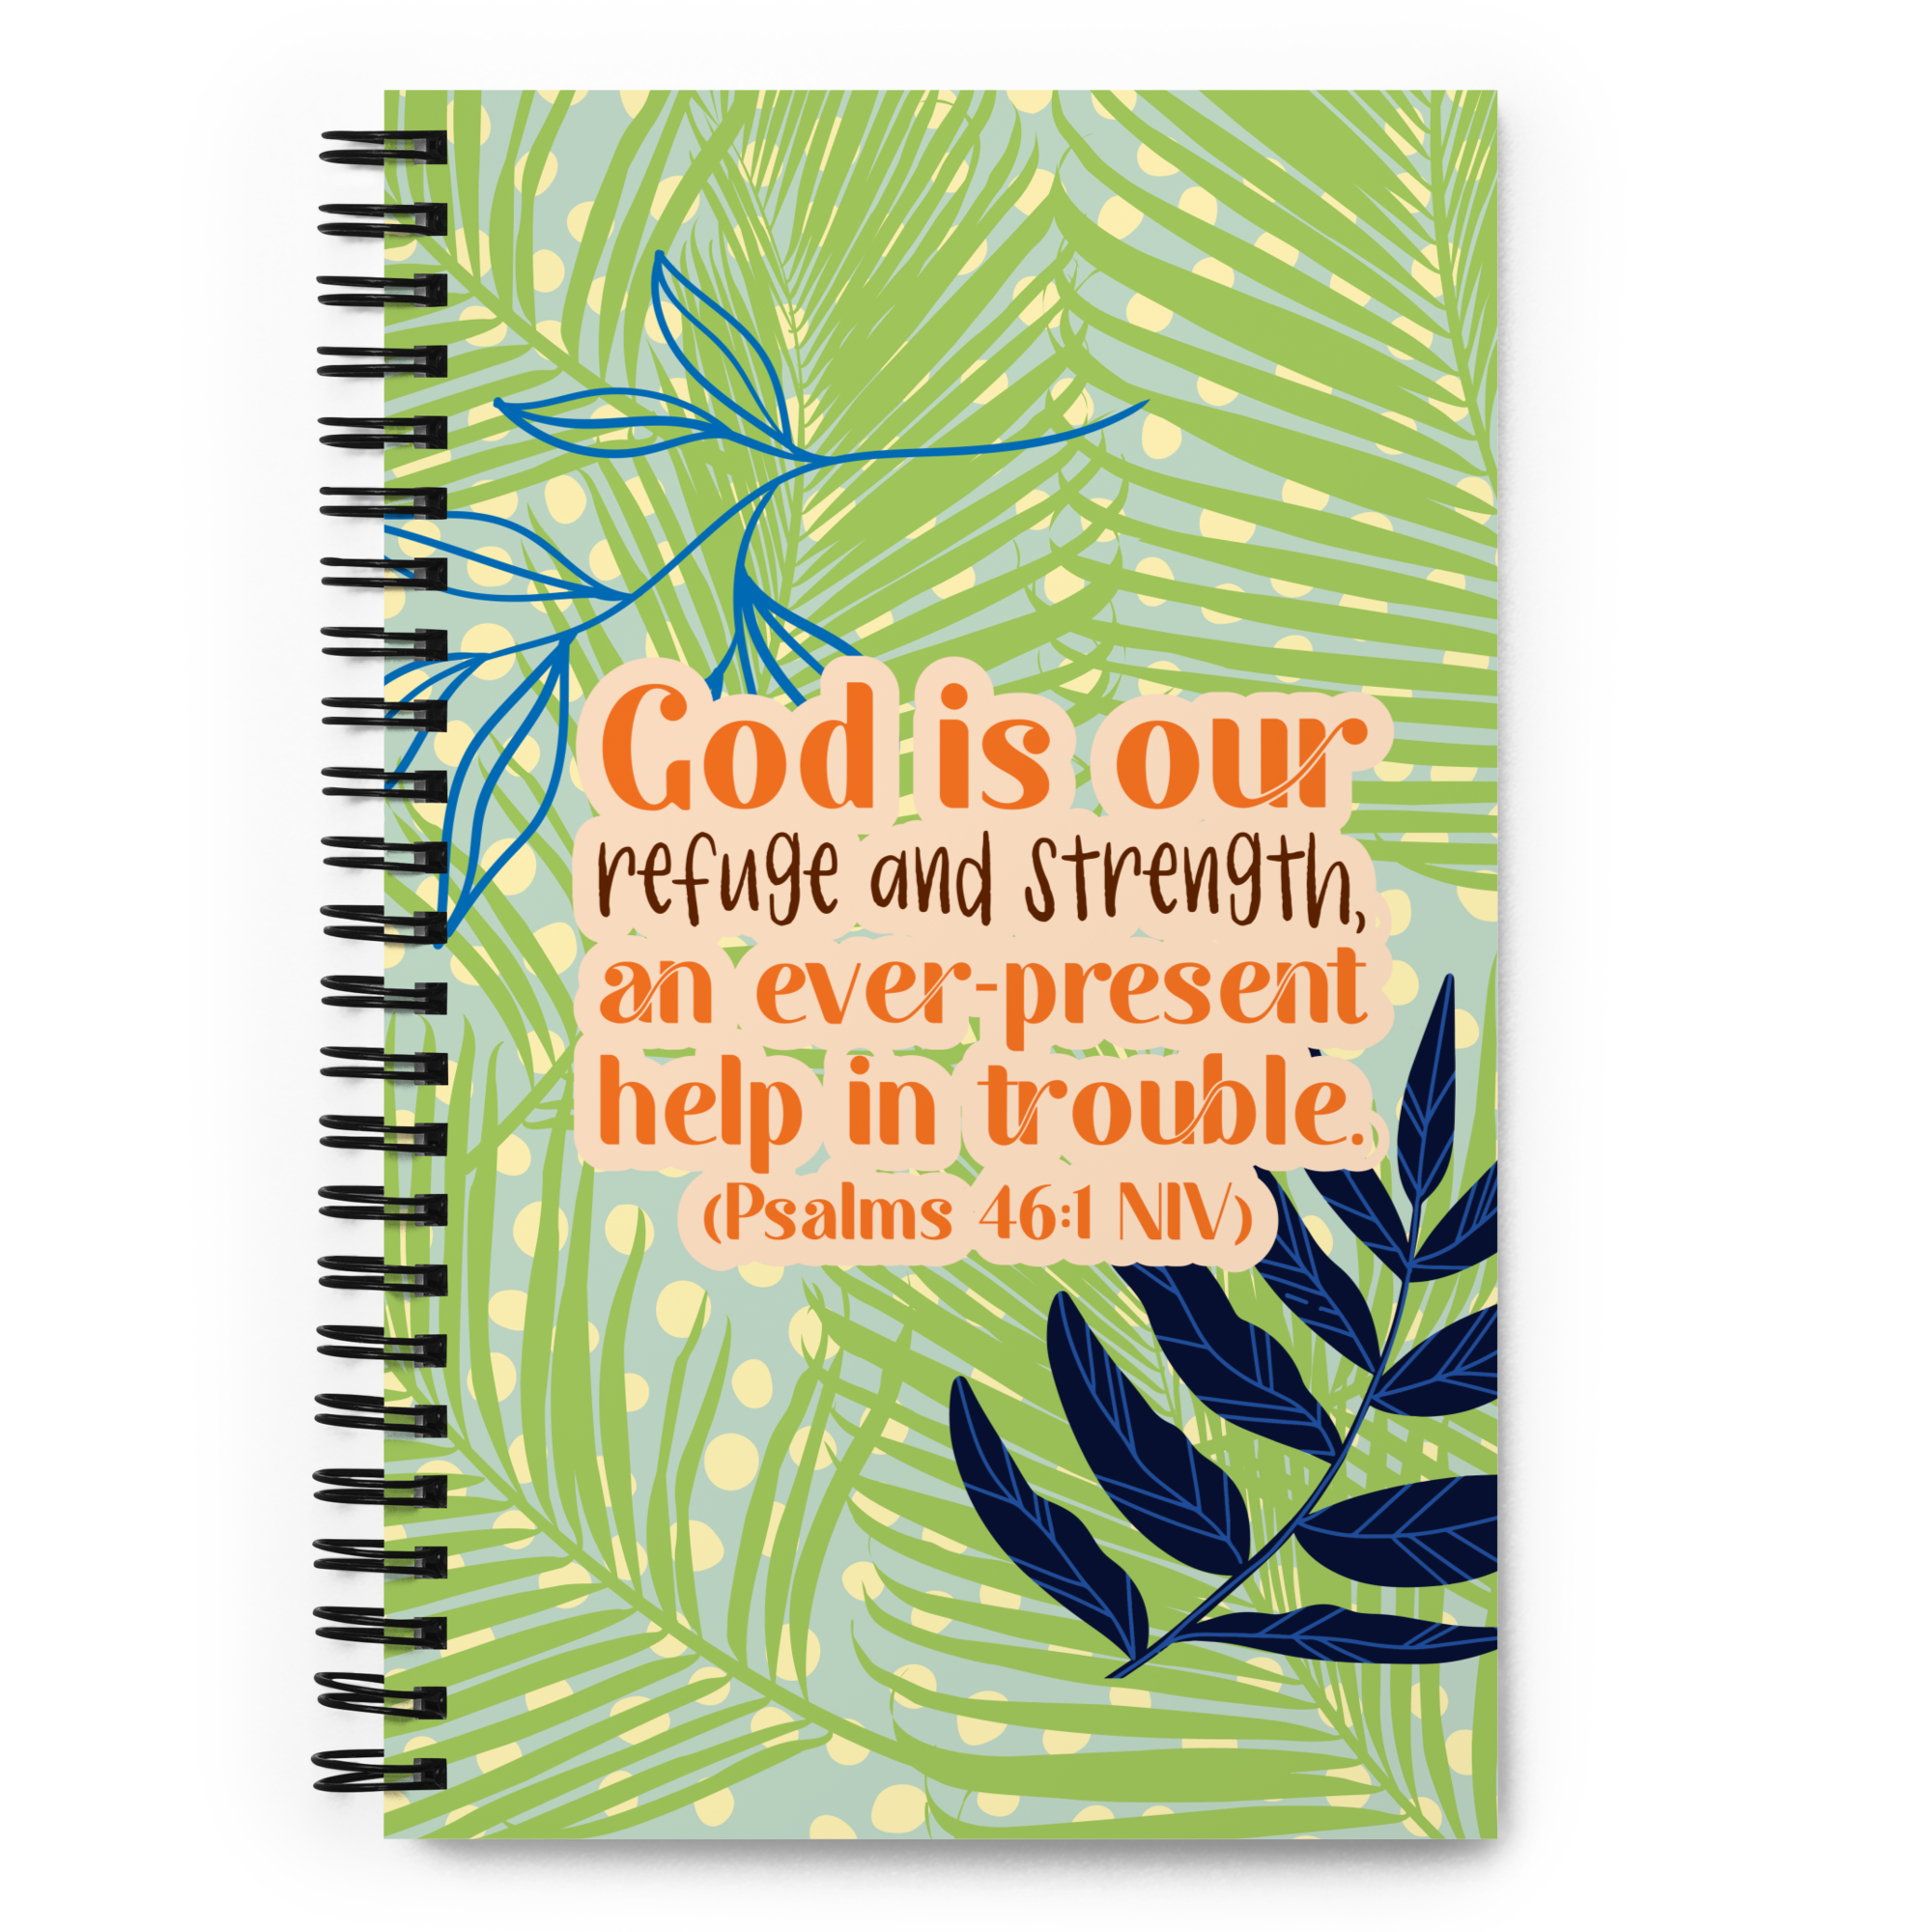 God is our
refuge and strength,
an ever-present
help in trouble.
(Psalms 46:1 NIV)